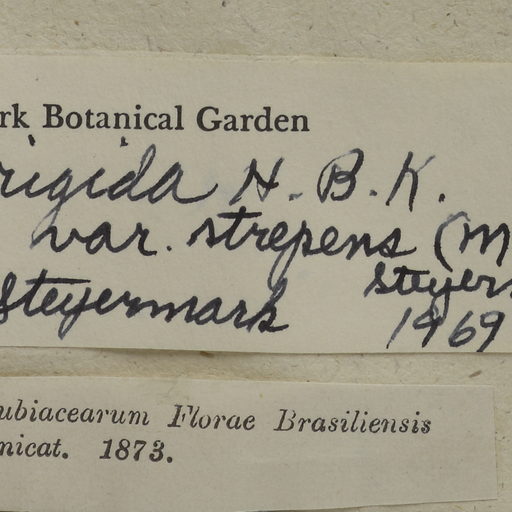 rk Botanical Garden
rigida H.B.K.
var. strepens (M
Steyerm
Steyermark
1969
ubiacearum Florae Brasiliensis
nicat. 1873.